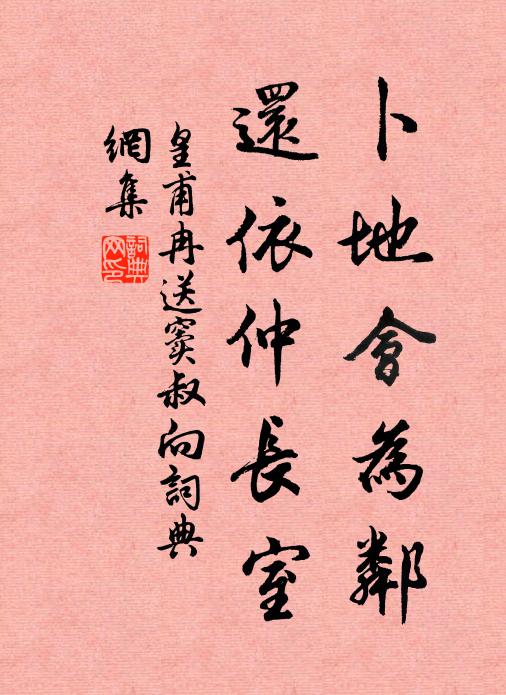 卜地會為鄰
還依仲長室
皇甫冉送竇叔向詞典
網集
詞典网印